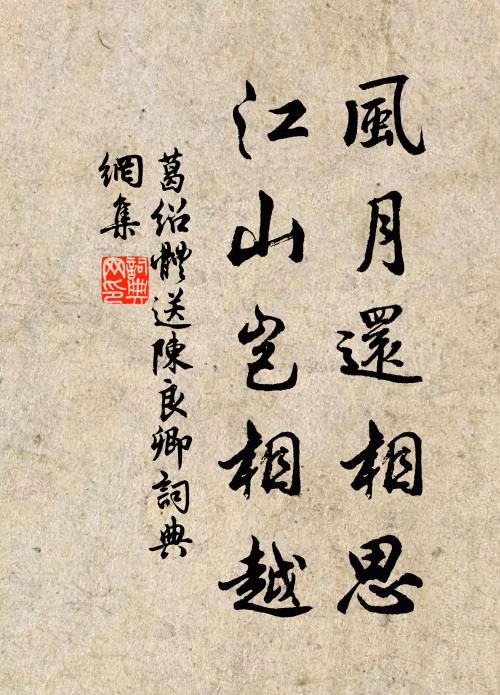 風月還相思
江山豈相越
葛紹體送陳良卿詞典
網集
詞典
网印